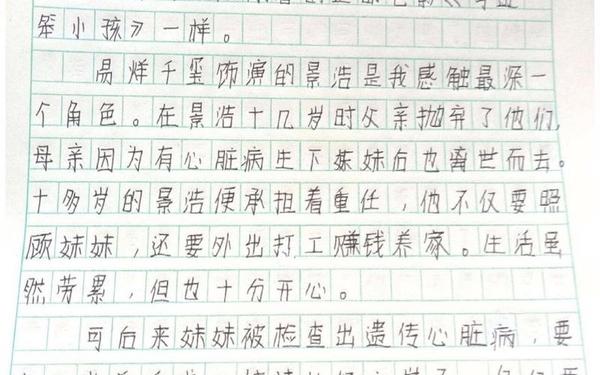 笨小孩》一样。
易烊千玺饰演的景浩是我感触最深一
个角色。在景浩十几岁时父亲抛弃了他们,
母亲因为有心脏病生下妹妹后也离世而去。
十多岁的景浩便承担着重任,他不仅要照
顾妹妹,还要外出打工赚钱养家。生活虽
然劳累,但也十分开心。
可后来妹妹被检查出遗传心脏病,要